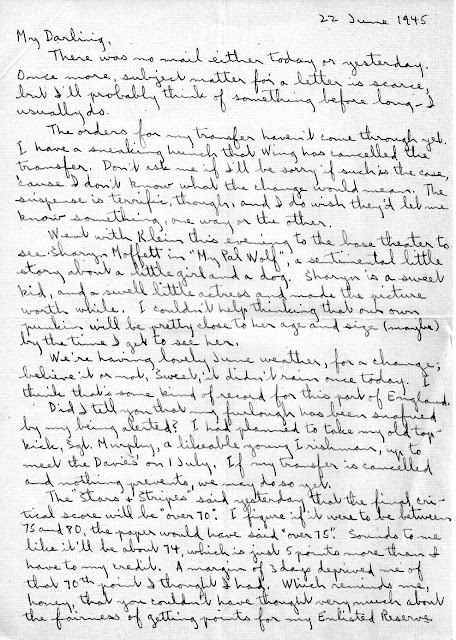 22 June 1945
My Darling,
There was no mail either today or yesterday.
Once more, subject matter for a letter is scarce,
but I'll probably think of something before long - I
usually do.
The orders for my transfer haven't come through yet.
I have a sneaking hunch that Wing has cancelled the
transfer. Don't ask me if I'll be sorry if such is the case,
'cause I don't know what the change would mean. The
suspense is terrific, though, and I do wish they'd let me
know something, one way or the other.
Went with Klein this evening to the base theater to
see Sharyn Moffett in "My Pal Wolf", a sentimental little
story about a little girl and a dog. Sharyn is a sweet
kid, and a swell little actress and made the picture
worth while. I couldn't help thinking that our own
punkin will be pretty close to her age and size (maybe)
by the time I get to see her.
We're having lovely June weather, for a change;
believe it or not, Sweet, it didn't rain once today. I
think that's some kind of record for this part of England.
Did I tell you that my furlough has been snafued
by my being alerted? I had planned to take my old top-
kick, Sgt. Murphy, a likeable young Irishman, up to
meet the Davies' on 1 July. If my transfer is cancelled
and nothing prevents, we may do so yet.
The "Stars + Stripes" said yesterday that the final cri-
tical score will be "over 70". I figure if it were to be between
75 and 80, the paper would have said "over 75". Sounds to me
like it'll be about 74, which is just 5 points more than I
have to my credit. A margin of 3 days deprived me of
that 70th point I thought I had. Which reminds me,
honey, that you couldn't have thought very much about
the fairness of getting points for my Enlisted Reserve